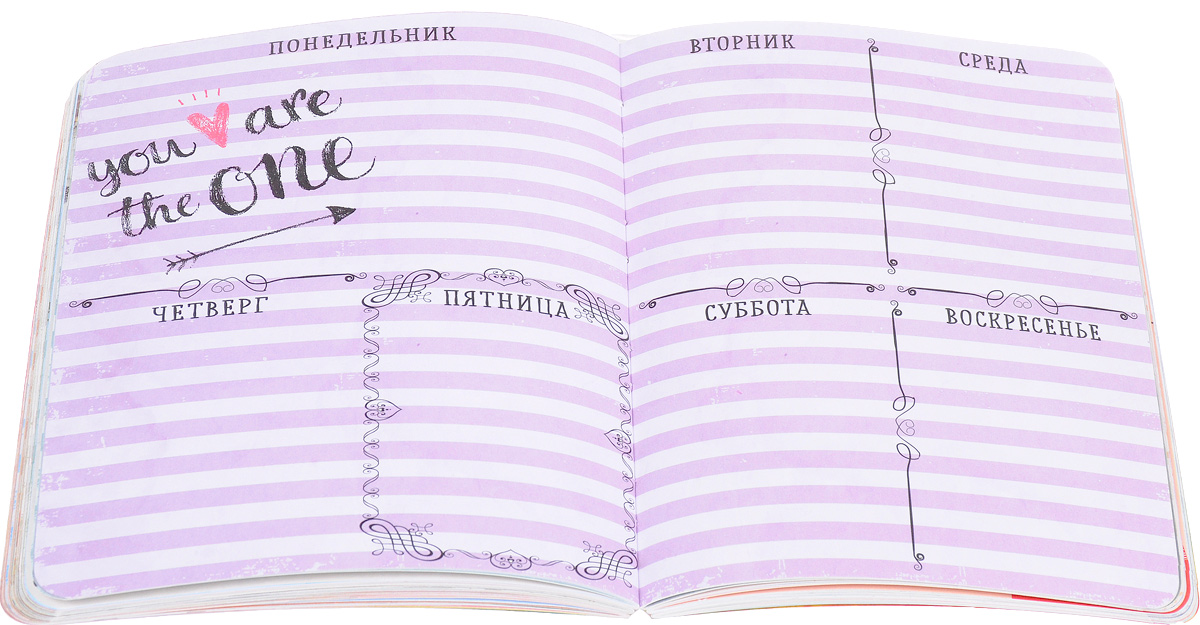 ПОНЕДЕЛЬНИК
you are
the one
ВТОРНИК
СРЕДА
ЧЕТВЕРГ
ПЯТНИЦА
СУББОТА
ВОСКРЕСЕНЬЕ